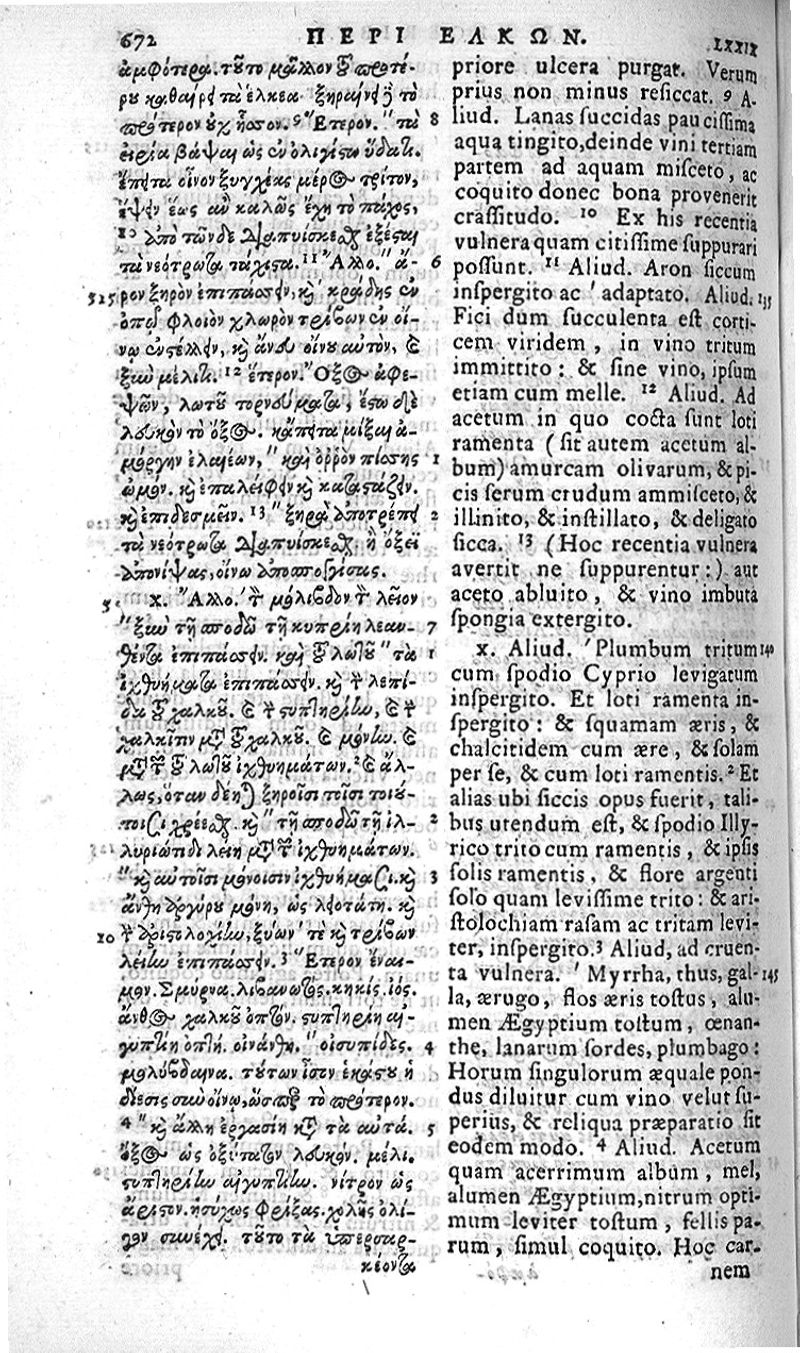 672 ΠΕΡΙ ΕΛΚΩΝ. LXXIX
ἀμφότερα. τοῦτο μᾶλλον τοῦ προτέ-
ρου καθαίρει τὰ ἕλκεα. ξηραίνει δὲ τὸ
πρότερον οὐχ ἧσσον. 9 Ἕτερον. τὰ 8
εἰρία βάψαι ὡς ἐν ὀλιγίστῳ ὕδατι.
ἔπειτα οἶνον ξυγχέας μέρος τρίτον,
ἕψειν ἕως ἂν καλῶς ἔχῃ τὸ πάχος,
10 ἀπὸ τῶνδε διαπυίσκεσθαι
τὰ νεότρωτα τάχιστα. 11 Ἄλλο. ἄ- 6
325 ρον ξηρὸν ἐπιπάσσειν, καὶ κράδης ἐν
ὀπῷ φλοιὸν χλωρὸν τρίβων ἐν οἴ-
νῳ ἐνστέλλειν, καὶ ἄνευ οἴνου αὐτὸν, καὶ
ξὺν μέλιτι. 12 ἕτερον. Ὄξος ἀφε-
ψῶν, λωτοῦ τορνεύματα, ἔστω δὲ
λευκὸν τὸ ὄξος. κἄπειτα μίξαι ἀ-
μόργην ἐλαιέων, καὶ ὀρρὸν πίσσης 1
ὠμόν. καὶ ἐπαλείφειν καὶ καταστάζειν.
καὶ ἐπιδεσμεῖν. 13 ξηρὰ ἀποτρέπει 2
τὰ νεότρωτα διαπυίσκεσθαι. ἢ ὄξεϊ
ἀπονίψας, οἴνῳ ἀποσπογγίσας.
5. Χ. Ἄλλο. τὸν μόλιβδον τὸν λεῖον
ξὺν τῇ σποδῷ τῇ κυπρίῃ λεαν- 7
θέντα ἐπιπάσσειν. καὶ τοῦ λωτοῦ τὰ 1
ἰχθυήματα ἐπιπάσσειν. καὶ τὴν λεπί-
δα τοῦ χαλκοῦ. καὶ τὴν στυπτηρίην, καὶ τὴν
χαλκῖτιν μετὰ τοῦ χαλκοῦ. καὶ μόνην. καὶ
μετὰ τῶν τοῦ λωτοῦ ἰχθυημάτων. 2 καὶ ἄλ-
λως, ὅταν δέῃ ξηροῖσι τοῖσι τοιού-
τοισι χρέεσθαι. καὶ τῇ σποδῷ τῇ ἰλ- 2
λυριώτιδι λείῃ μετὰ τῶν ἰχθυημάτων.
καὶ αὐτοῖσι μόνοισιν ἰχθυήμασι. καὶ 3
ἄνθη ἀργύρου μόνῃ, ὡς λειοτάτῃ. καὶ
10 τὴν ἀριστολοχίην, ξύων τε καὶ τρίβων
λείην ἐπιπάσσειν. 3 Ἕτερον ἔναι-
μον. Σμύρνα. λιβανωτός. κηκίς. ἰός.
ἄνθος χαλκοῦ ὀπτόν. στυπτηρίη αἰ-
γυπτίη ὀπτή. οἰνάνθη. οἰσυπίδες. 4
μολύβδαινα. τούτων ἴσον ἑκάστου ἡ
δίεσις σὺν οἴνῳ, ὥσπερ τὸ πρότερον.
4 καὶ ἄλλη ἐργασίη κατὰ τὰ αὐτά. 5
ὄξος ὡς ὀξύτατον λευκόν. μέλι.
στυπτηρίην αἰγυπτίην. νίτρον ὡς
ἄριστον. ἡσύχως φρίξας. χολῆς ὀλί-
γον συνέψῃ. τοῦτο τὰ ὑπερσαρ-
κέοντα
priore ulcera purgat. Verum
prius non minus resiccat. 9 A-
liud. Lanas succidas paucissima
aqua tingito, deinde vini tertiam
partem ad aquam misceto, ac
coquito donec bona provenerit
crassitudo. 10 Ex his recentia
vulnera quam citissime suppurari
possunt. 11 Aliud. Aron siccum
inspergito ac ' adaptato. Aliud. 135
Fici dum succulenta est corti-
cem viridem, in vino tritum
immittito: & sine vino, ipsum
etiam cum melle. 12 Aliud. Ad
acetum in quo cocta sunt loti
ramenta (sit autem acetum al-
bum) amurcam olivarum, & pi-
cis serum crudum ammisceto, &
illinito, & instillato, & deligato
sicca. 13 (Hoc recentia vulnera
avertit ne suppurentur:) aut
aceto abluito, & vino imbuta
spongia extergito.
x. Aliud. 'Plumbum tritum 140
cum spodio Cyprio levigatum
inspergito. Et loti ramenta in-
spergito: & squamam æris, &
chalcitidem cum ære, & solam
per se, & cum loti ramentis. 2 Et
alias ubi siccis opus fuerit, tali-
bus utendum est, & spodio Illy-
rico trito cum ramentis, & ipsis
solis ramentis, & flore argenti
solo quam levissime trito: & ari-
stolochiam rasam ac tritam levi-
ter, inspergito. 3 Aliud, ad cruen-
ta vulnera. 'Myrrha, thus, gal- 145
la, ærugo, flos æris tostus, alu-
men Ægyptium tostum, œnan-
the, lanarum sordes, plumbago:
Horum singulorum æquale pon-
dus diluitur cum vino velut su-
perius, & reliqua præparatio sit
eodem modo. 4 Aliud. Acetum
quam acerrimum album, mel,
alumen Ægyptium, nitrum opti-
mum leviter tostum, fellis pa-
rum, simul coquito. Hoc car-
nem